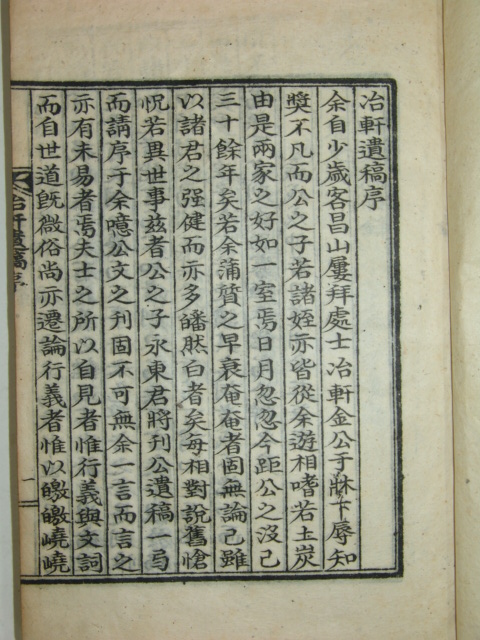 冶軒遺稿序
余自少歲客昌山屢拜處士冶軒金公于牀下辱知
奬不凡而公之子若諸姪亦皆從余遊相嗜若土炭
由是兩家之好如一室焉日月忽忽今距公之沒已
三十餘年矣若余蒲質之早衰奄奄者固無論已雖
以諸君之强健而亦多皤然白者矣每相對說舊愴
怳若異世事玆者公之子永東君將刊公遺稿一局
而請序于余噫公文之刊固不可無余一言而言之
亦有未易者焉夫士之所以自見者惟行義與文詞
而自世道旣微俗尚亦遷論行義者惟以皦皦嶢嶢
冶軒遺稿序
一